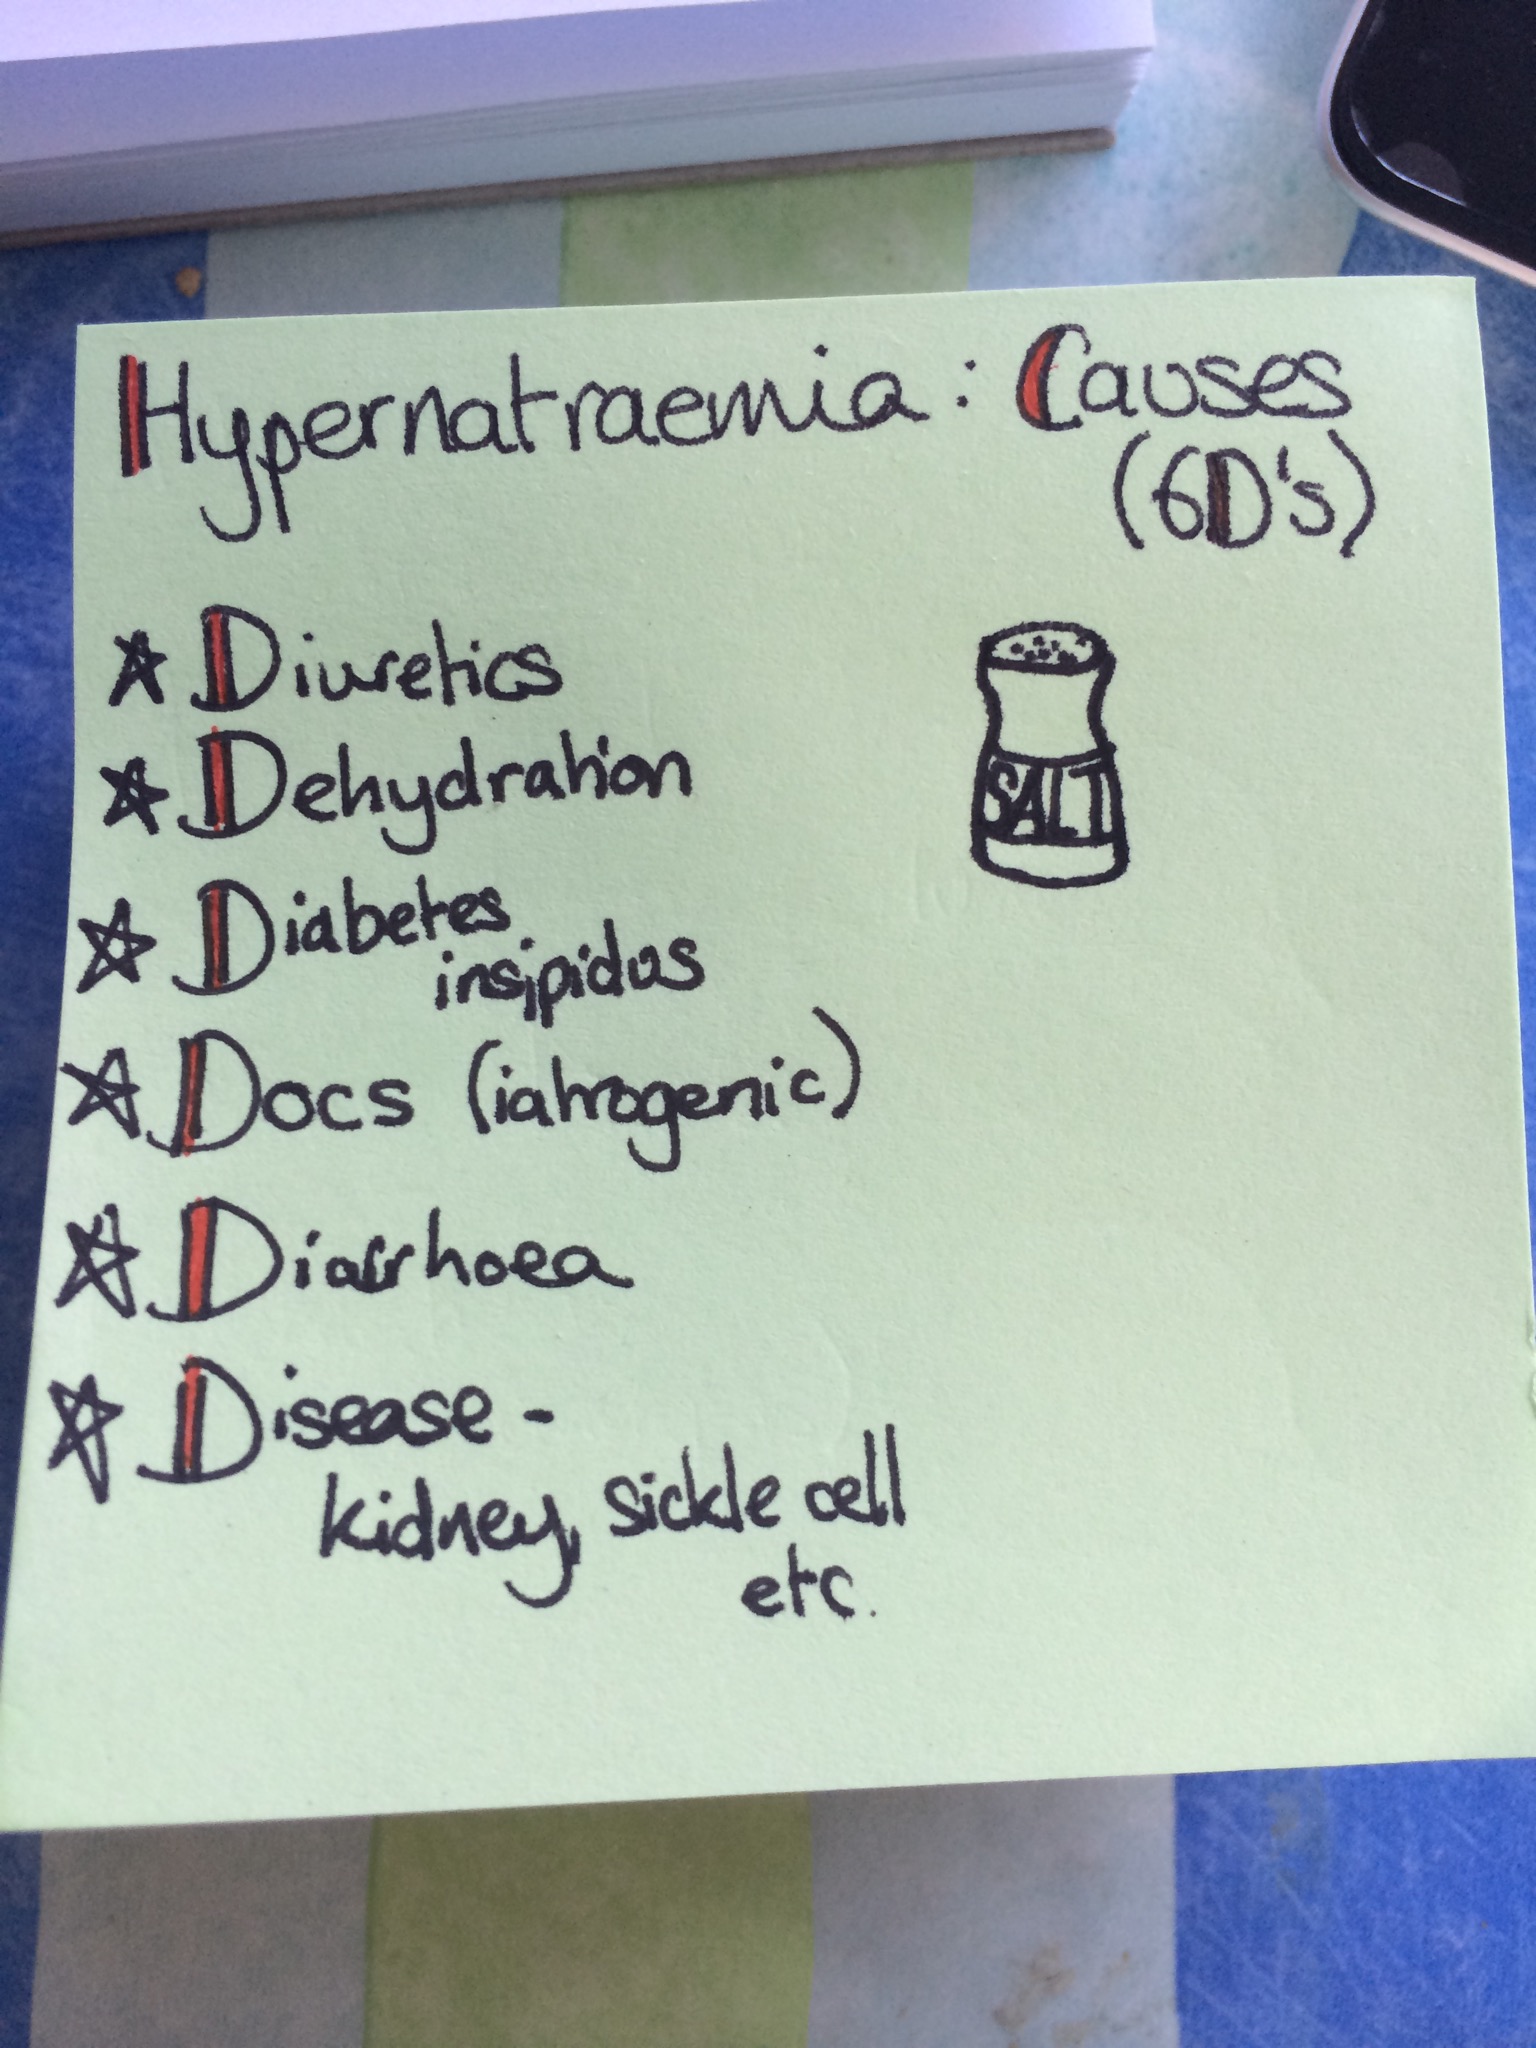 Hypernatraemia: Causes
(6D's)
Diuretics
SALT
Dehydration
Diabetes
insipidus
Docs (iatrogenic)
Diarrhoea
Disease -
kidney, sickle cell
etc.